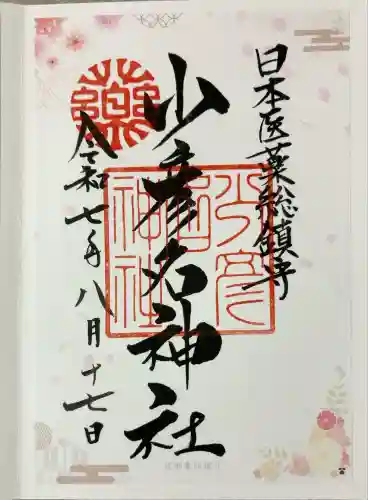 日本医薬総鎮守
少彦名神社
令和七年八月十七日
薬
少彦名神社